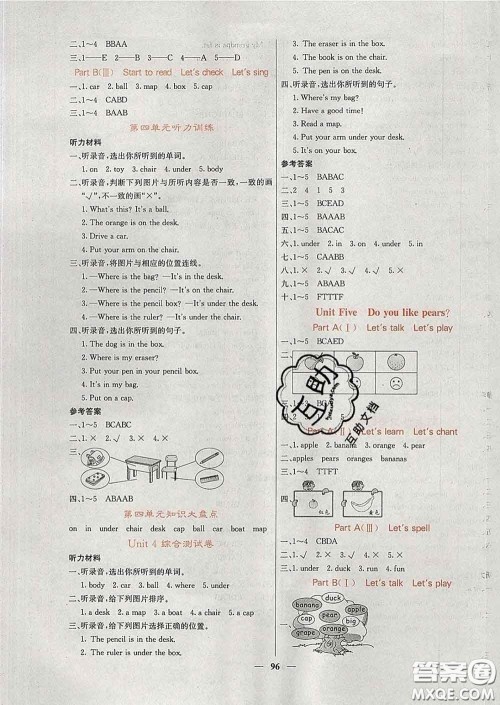 二、1~4 BBAA
三、1——E 2——B 3——C 4——A 5——D
Part B(Ⅲ) Start to read Let's check Let's sing
一、1. car 2. ball 3. map 4. box 5. cap
二、1~4 CABD
三、1~4 BAAB
第四单元听力训练
听力材料
一、听录音,选出你所听到的单词。
1. on 2. toy 3. chair 4. ball 5. under
二、听录音,判断下列图片与所听内容是否一致,一致的画
“√”,不一致的画“×”。
1. What's this? It's a ball.
2. The orange is on the desk.
3. Drive a car.
4. Put your arm on the chair.
三、听录音,将图片与相应的位置连线。
1. —Where is the bag? —It's in the desk.
2. —Where is the pencil? —It's on the chair.
3. —Where is the pencil box? —It's under the desk.
4. —Where is the ruler? —It's under the chair.
四、听录音,选出你所听到的句子。
1. The dog is in the box.
2. Where is my eraser?
3. Put your pen in your pencil box.
4. It's in my bag.
5. Put your cap on the chair.
参考答案
一、1~5 BCABC
二、1. × 2. √ 3. × 4. ×
三、
四、1~5 ABAAB
第四单元知识大盘点
on in under chair desk cap ball car boat map
Unit 4 综合测试卷
听力材料
一、听录音,选出你所听到的单词。
1. body 2. car 3. ball 4. under 5. chair
二、听录音,给下列图片排序。
1. a desk 2. a map 3. a boat 4. a chair 5. a cap
三、听录音,给下列图片选择正确的位置。
1. The pencil is in the desk.
2. The ruler is under the box.
3. The eraser is in the box.
4. The book is on the chair.
5. The pen is on the desk.
四、听录音,选出你所听到的句子。
1. Where's my bag?
2. Have a good time!
3. Read a map.
4. Put your arm under your desk.
5. The toys are in the box.
参考答案
一、1~5 BABAC
二、2 4 1 5 3
三、1~5 BCEAD
四、1~5 BAAAB
五、1~5 BACAC
六、1. under 2. in 3. on 4. under 5. on
七、1~5 CAABB
八、1. × 2. √ 3. × 4. √ 5. √
九、1~5 ABAAA
十、1~5 FTTTF
Unit Five Do you like pears?
Part A(Ⅰ) Let's talk Let's play
一、1~5 BCAED
二、
三、1~3
Let's learn Let's chant
一、1. apple 2. pears 3. banana 4. orange 5. pear
二、apples pears oranges bananas
三、1~4 TTFT
四、
红色 黄色
Part A(Ⅲ) Let's spell
一、1~4 CBDA
二、1. × 2. √ 3. √ 4. × 5. √
三、1. under 2. duck 3. run 4. fun
Part B(Ⅰ) Let's talk Let's play
一、
duck
banana apple
pear
cap big
grape orange
互助
互助文档
96
答案圈
MXQE.COM